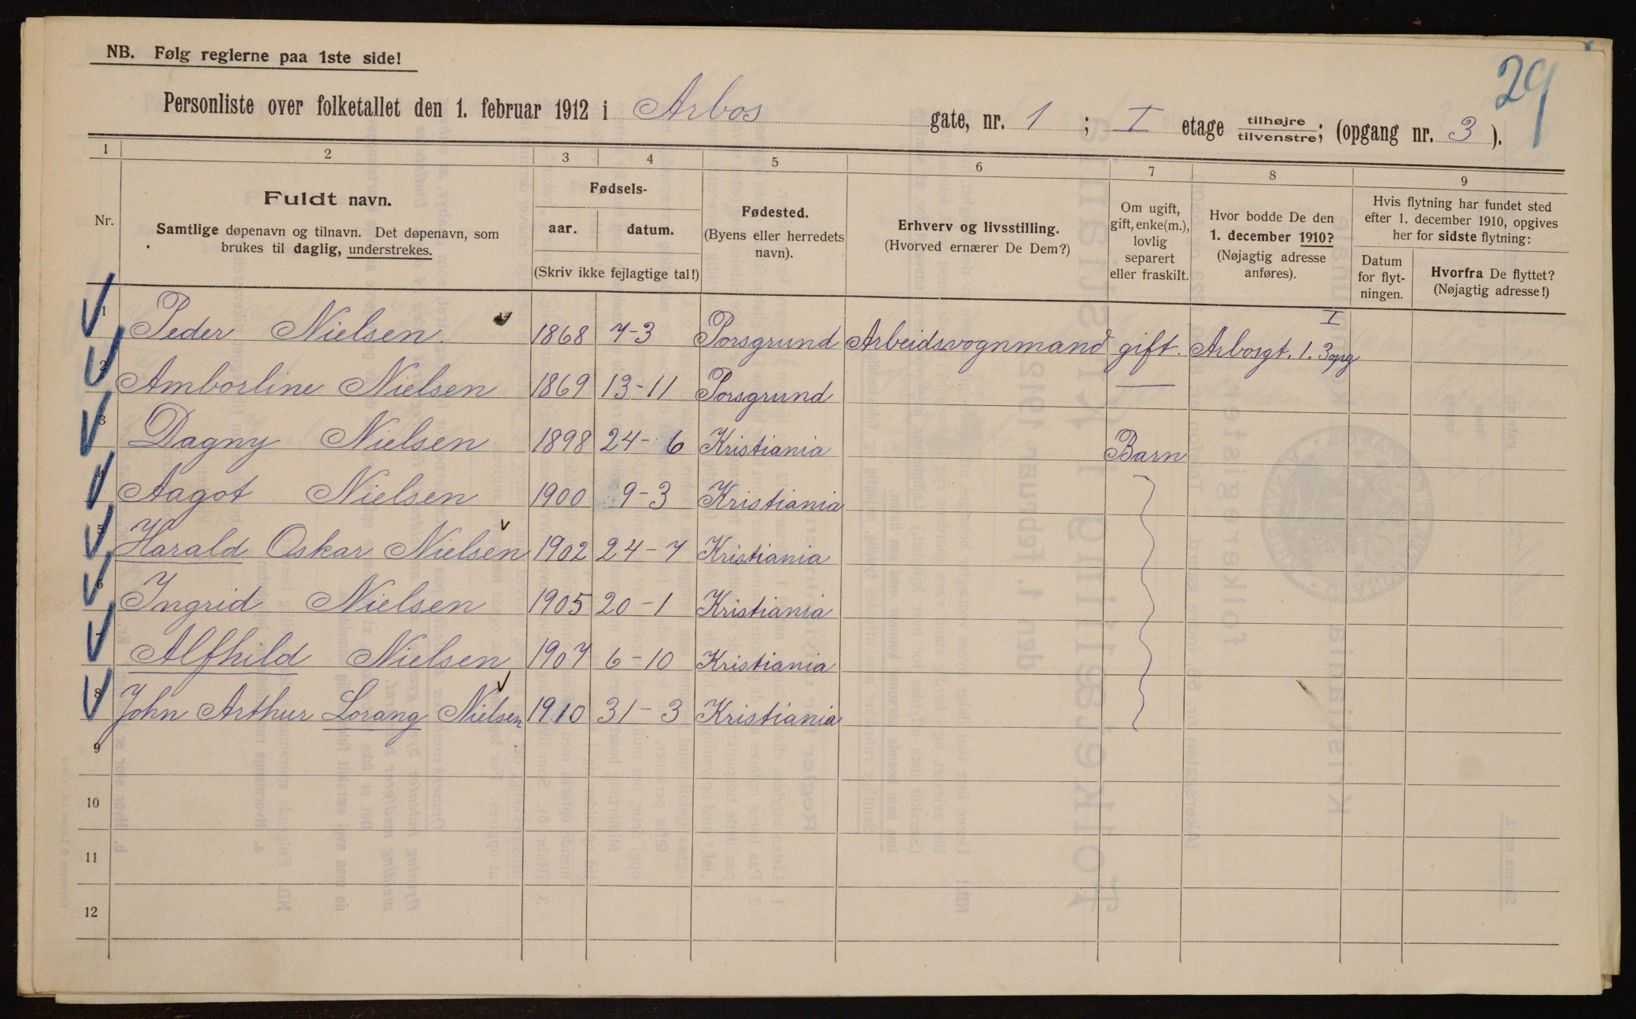 29
NB. Følg reglerne paa 1ste side!
Personliste over folketallet den 1. februar 1912 i Arbos gate, nr. 1 ; I etage tilhøjre tilvenstre; (opgang nr. 3 ).
1 2 3 4 5 6 7 8 9
Nr.
Fuldt navn.
Samtlige døpenavn og tilnavn. Det døpenavn, som
brukes til daglig, understrekes.
Fødsels-
aar. datum.
(Skriv ikke fejlagtige tal!)
Fødested.
(Byens eller herredets
navn).
Erhverv og livsstilling.
(Hvorved ernærer De Dem?)
Om ugift,
gift, enke(m.),
lovlig
separert
eller fraskilt.
Hvor bodde De den
1. december 1910?
(Nøjagtig adresse
anføres).
Hvis flytning har fundet sted
efter 1. december 1910, opgives
her for sidste flytning:
Datum
for flyt-
ningen.
Hvorfra De flyttet?
(Nøjagtig adresse!)
1 Peder Nielsen 1868 7-3 Porsgrund Arbeidsvognmand gift. Arbosgt. 1. 3opg I
2 Amborline Nielsen 1869 13-11 Porsgrund —
3 Dagny Nielsen 1898 24-6 Kristiania Barn
4 Aagot Nielsen 1900 9-3 Kristiania
5 Harald Oskar Nielsen 1902 24-7 Kristiania
6 Ingrid Nielsen 1905 20-1 Kristiania
7 Alfhild Nielsen 1907 6-10 Kristiania
8 John Arthur Lorang Nielsen 1910 31-3 Kristiania
9
10
11
12